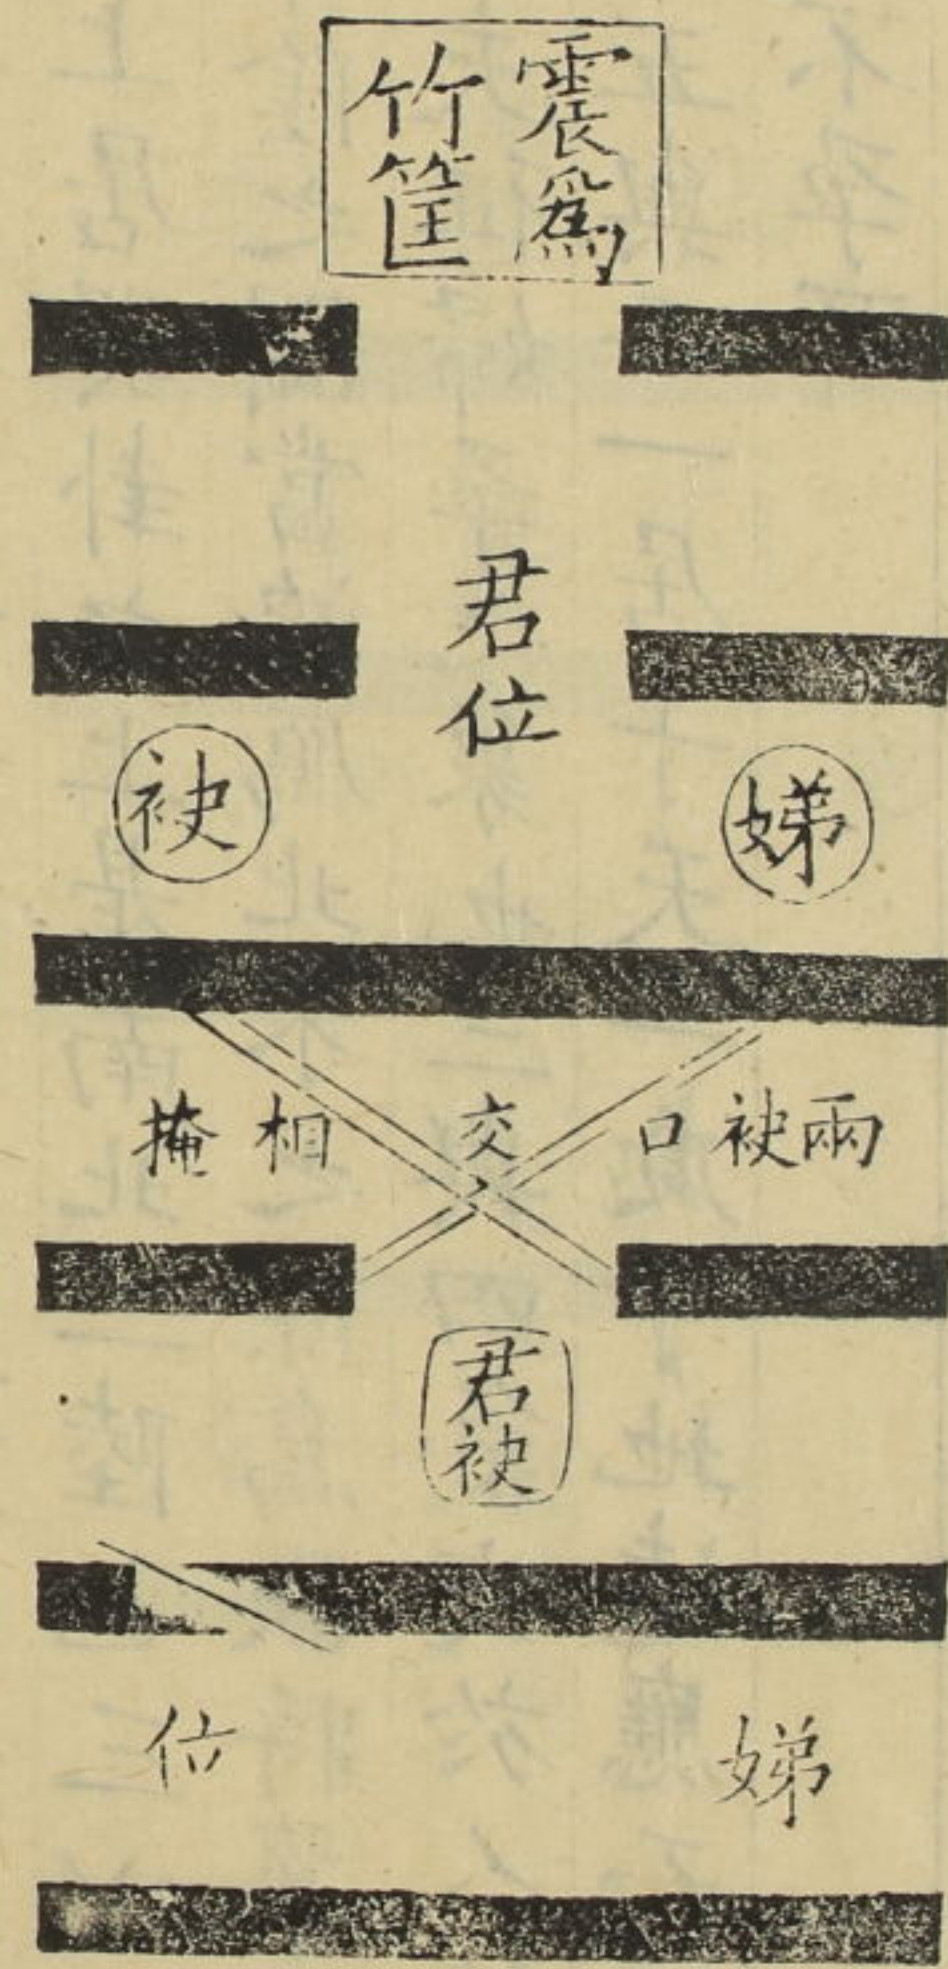 震爲
竹筐
君位
娣
袂
兩袂口交相掩
君袂
娣位